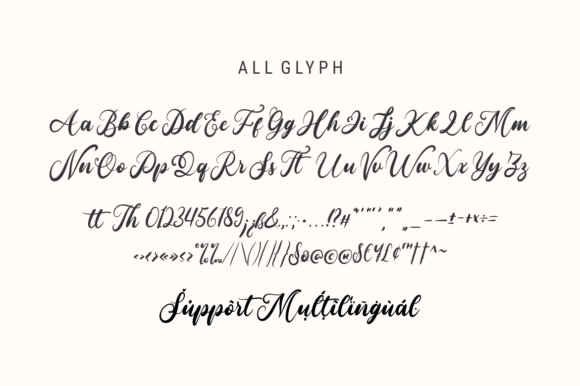 ALL GLYPH
Aa Bb Cc Dd Ee Ff Gg Hh Ii Jj Kk Ll Mm
Nn Oo Pp Qq Rr Ss Tt Uu Vv Ww Xx Yy Zz
tt Th 0123456789¡¿ß&.,:;·…!?#
Śúppòrt Mụĺţïlïñġùál